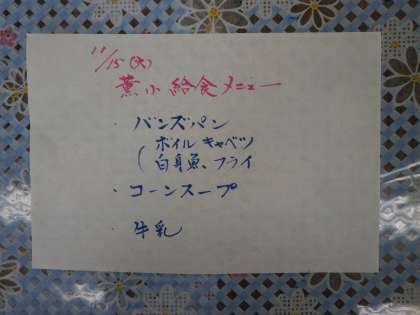 11/15(火)
薫小給食メニュー
・バンズパン
(ボイルキャベツ
白身魚フライ
・コーンスープ
・牛乳